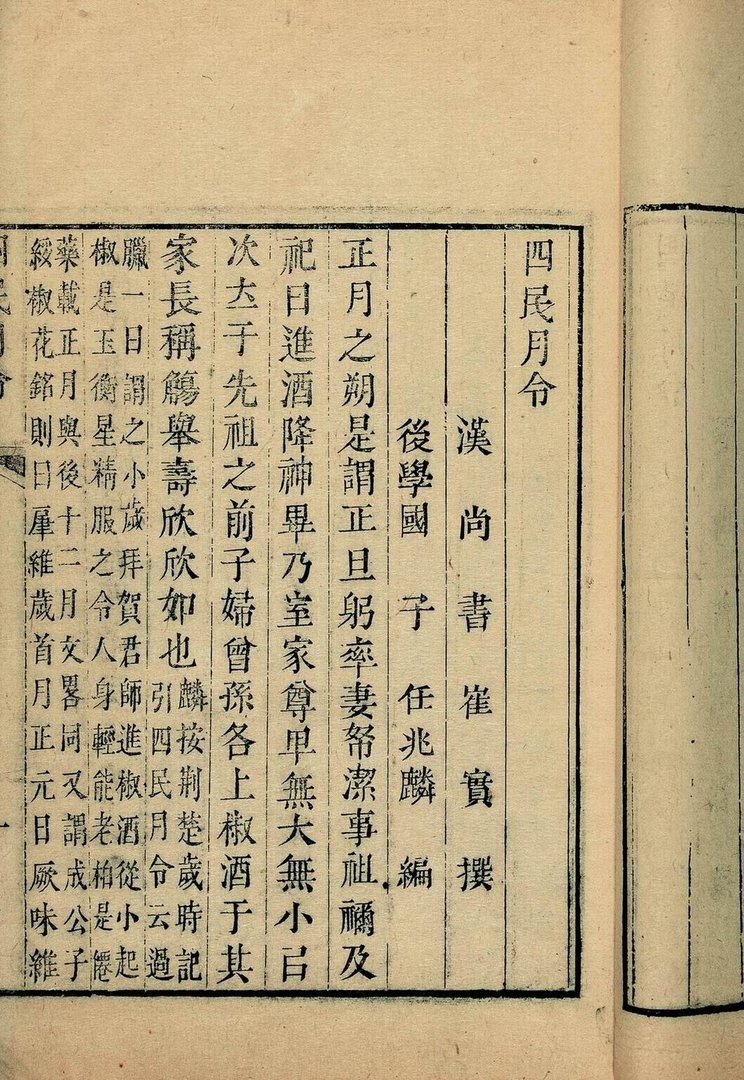 四民月令
漢尚書崔寔撰
後學國子任兆麟編
正月之朔是謂正旦躬率妻帑潔事祖禰及
祀日進酒降神畢乃室家尊卑無大無小㠯
次㔫于先祖之前子婦曾孫各上椒酒于其
家長稱觴舉壽欣欣如也
麟按荆楚歲時記
引四民月令云過
臘一日謂之小歲拜賀君師進椒酒從小起
椒是玉衡星精服之令人身輕能老柏是僊
藥載正月與後十二月文畧同又謂成公子
綏椒花銘則曰肇維歲首月正元日厥味維